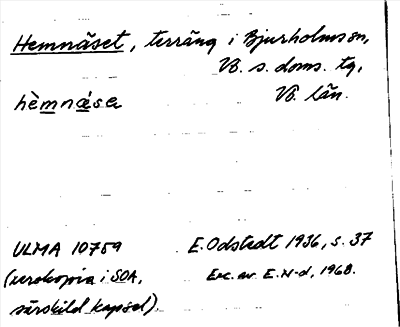 Hemnäset, terräng i Bjurholms sn,
Vb. s. doms. tg,
hèmnǻsa Vb. län.
ULMA 10759 E. Odstedt 1936, s. 37
(xerokopia i SOA, Exc. av E. N-d, 1968.
särskild kapsel).